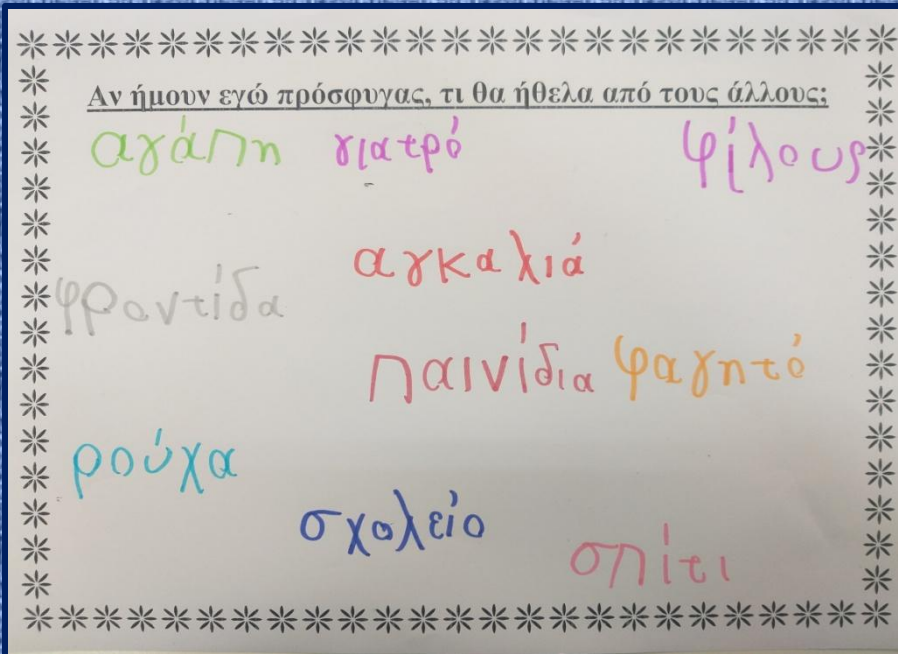 Αν ήμουν εγώ πρόσφυγας, τι θα ήθελα από τους άλλους;
αγάπη γιατρό φίλους
αγκαλιά
φροντίδα
παινίδια φαγητό
ρούχα
σχολείο
σπίτι